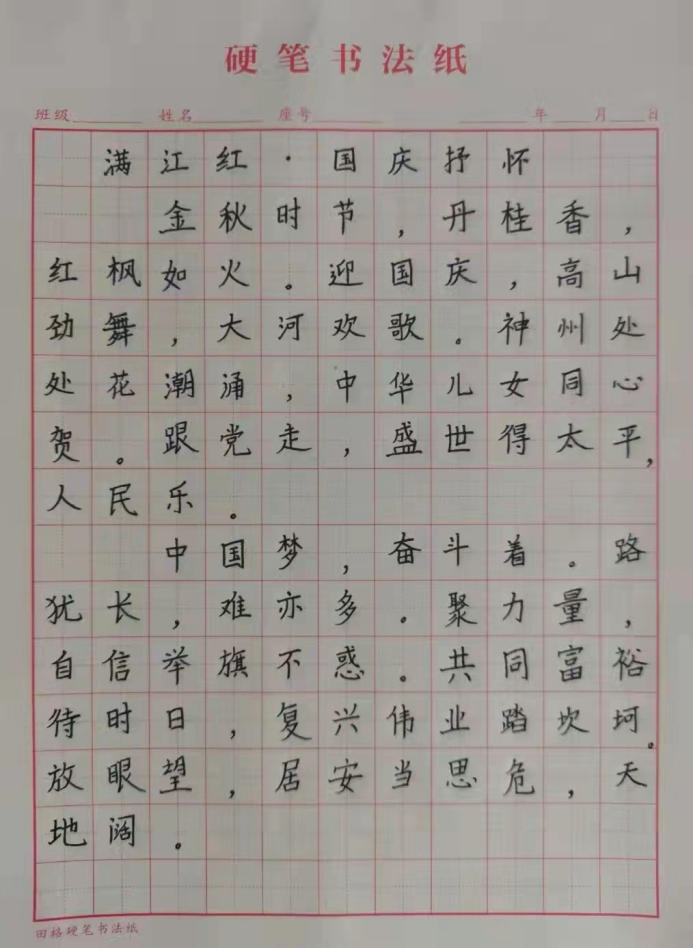 硬笔书法纸
班级 姓名 座号 年 月 日
满江红·国庆抒怀
金秋时节，丹桂香，
红枫如火。迎国庆，高山
劲舞，大河欢歌。神州处
处花潮涌，中华儿女同心
贺。跟党走，盛世得太平，
人民乐。
中国梦，奋斗着。路
犹长，难亦多。聚力量，
自信举旗不惑。共同富裕
待时日，复兴伟业踏坎坷。
放眼望，居安当思危，天
地阔。
田格硬笔书法纸